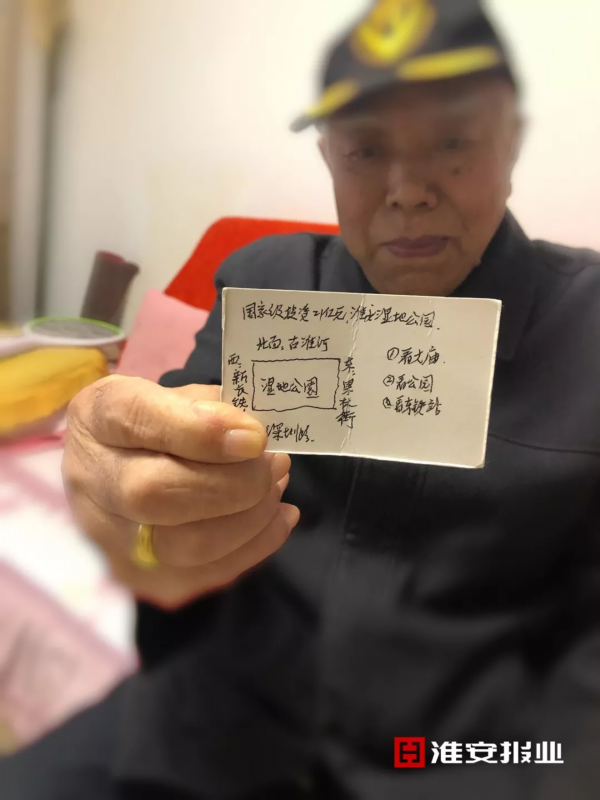 国家级投资21亿元,淮安湿地公园.
北面,古淮河
西,新长铁
湿地公园
东,果林街
深圳路.
①看大庙.
②看公园
③看东铁站
淮安报业